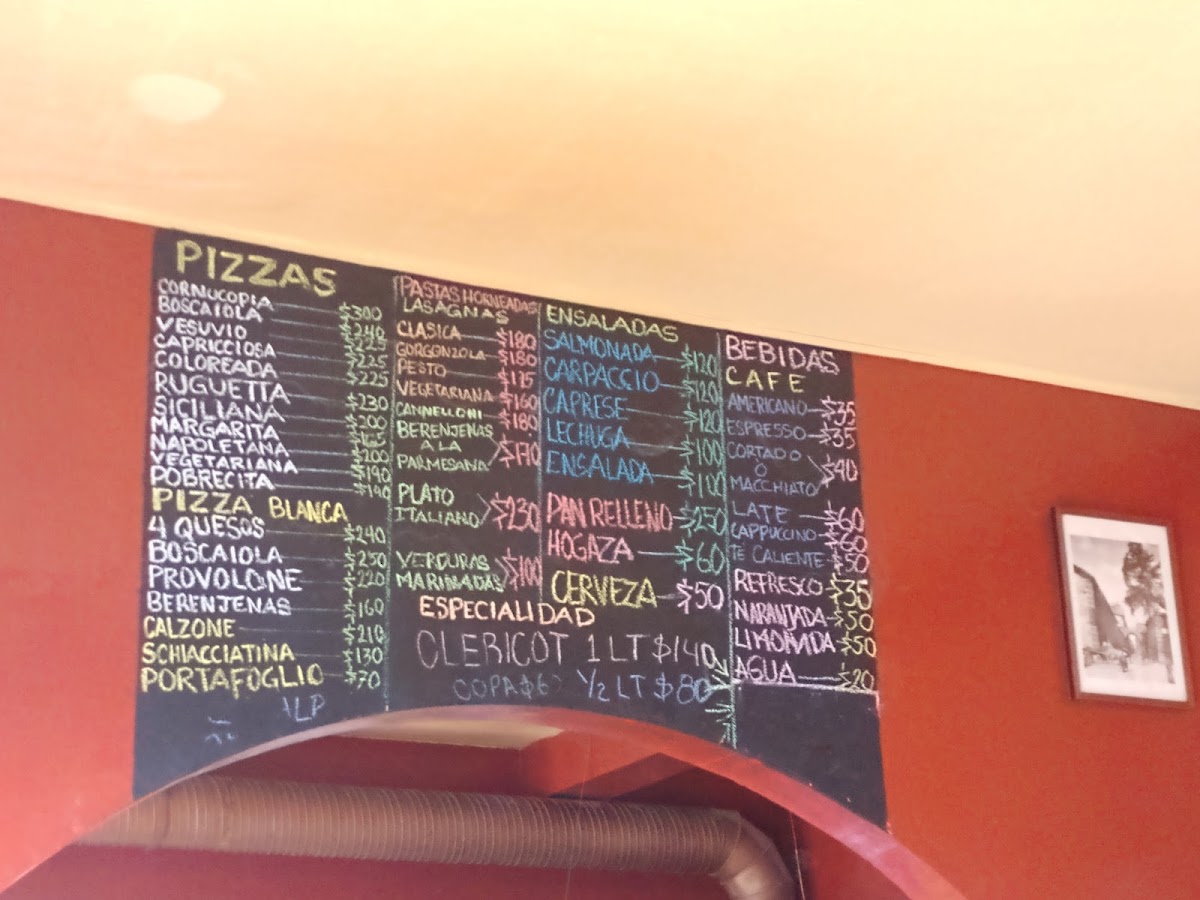 PIZZAS
CORNUCOPIA $300
BOSCAIOLA $240
VESUVIO $225
CAPRICCIOSA $225
COLOREADA $225
RUGUETTA $230
SICILIANA $200
MARGARITA $165
NAPOLETANA $200
VEGETARIANA $190
POBRECITA $140
PIZZA BLANCA
4 QUESOS $240
BOSCAIOLA $250
PROVOLONE $220
BERENJENAS $160
CALZONE $210
SCHIACCIATINA $130
PORTAFOGLIO $70
PASTAS HORNEADAS
LASAGNAS
CLASICA $180
GORGONZOLA $180
PESTO $175
VEGETARIANA $160
CANNELLONI $180
BERENJENAS
A LA
PARMESANA $170
PLATO
ITALIANO $230
VERDURAS
MARINADAS $100
ENSALADAS
SALMONADA $120
CARPACCIO $120
CAPRESE $120
LECHUGA $100
ENSALADA $100
PAN RELLENO $250
HOGAZA $60
CERVEZA $50
ESPECIALIDAD
CLERICOT 1 LT $140
COPA 1/2 LT $80
BEBIDAS
CAFE
AMERICANO $35
ESPRESSO $35
CORTADO
O
MACCHIATO $40
LATE $60
CAPPUCCINO $60
TÉ CALIENTE $50
REFRESCO $35
NARANJADA $50
LIMONADA $50
AGUA $20